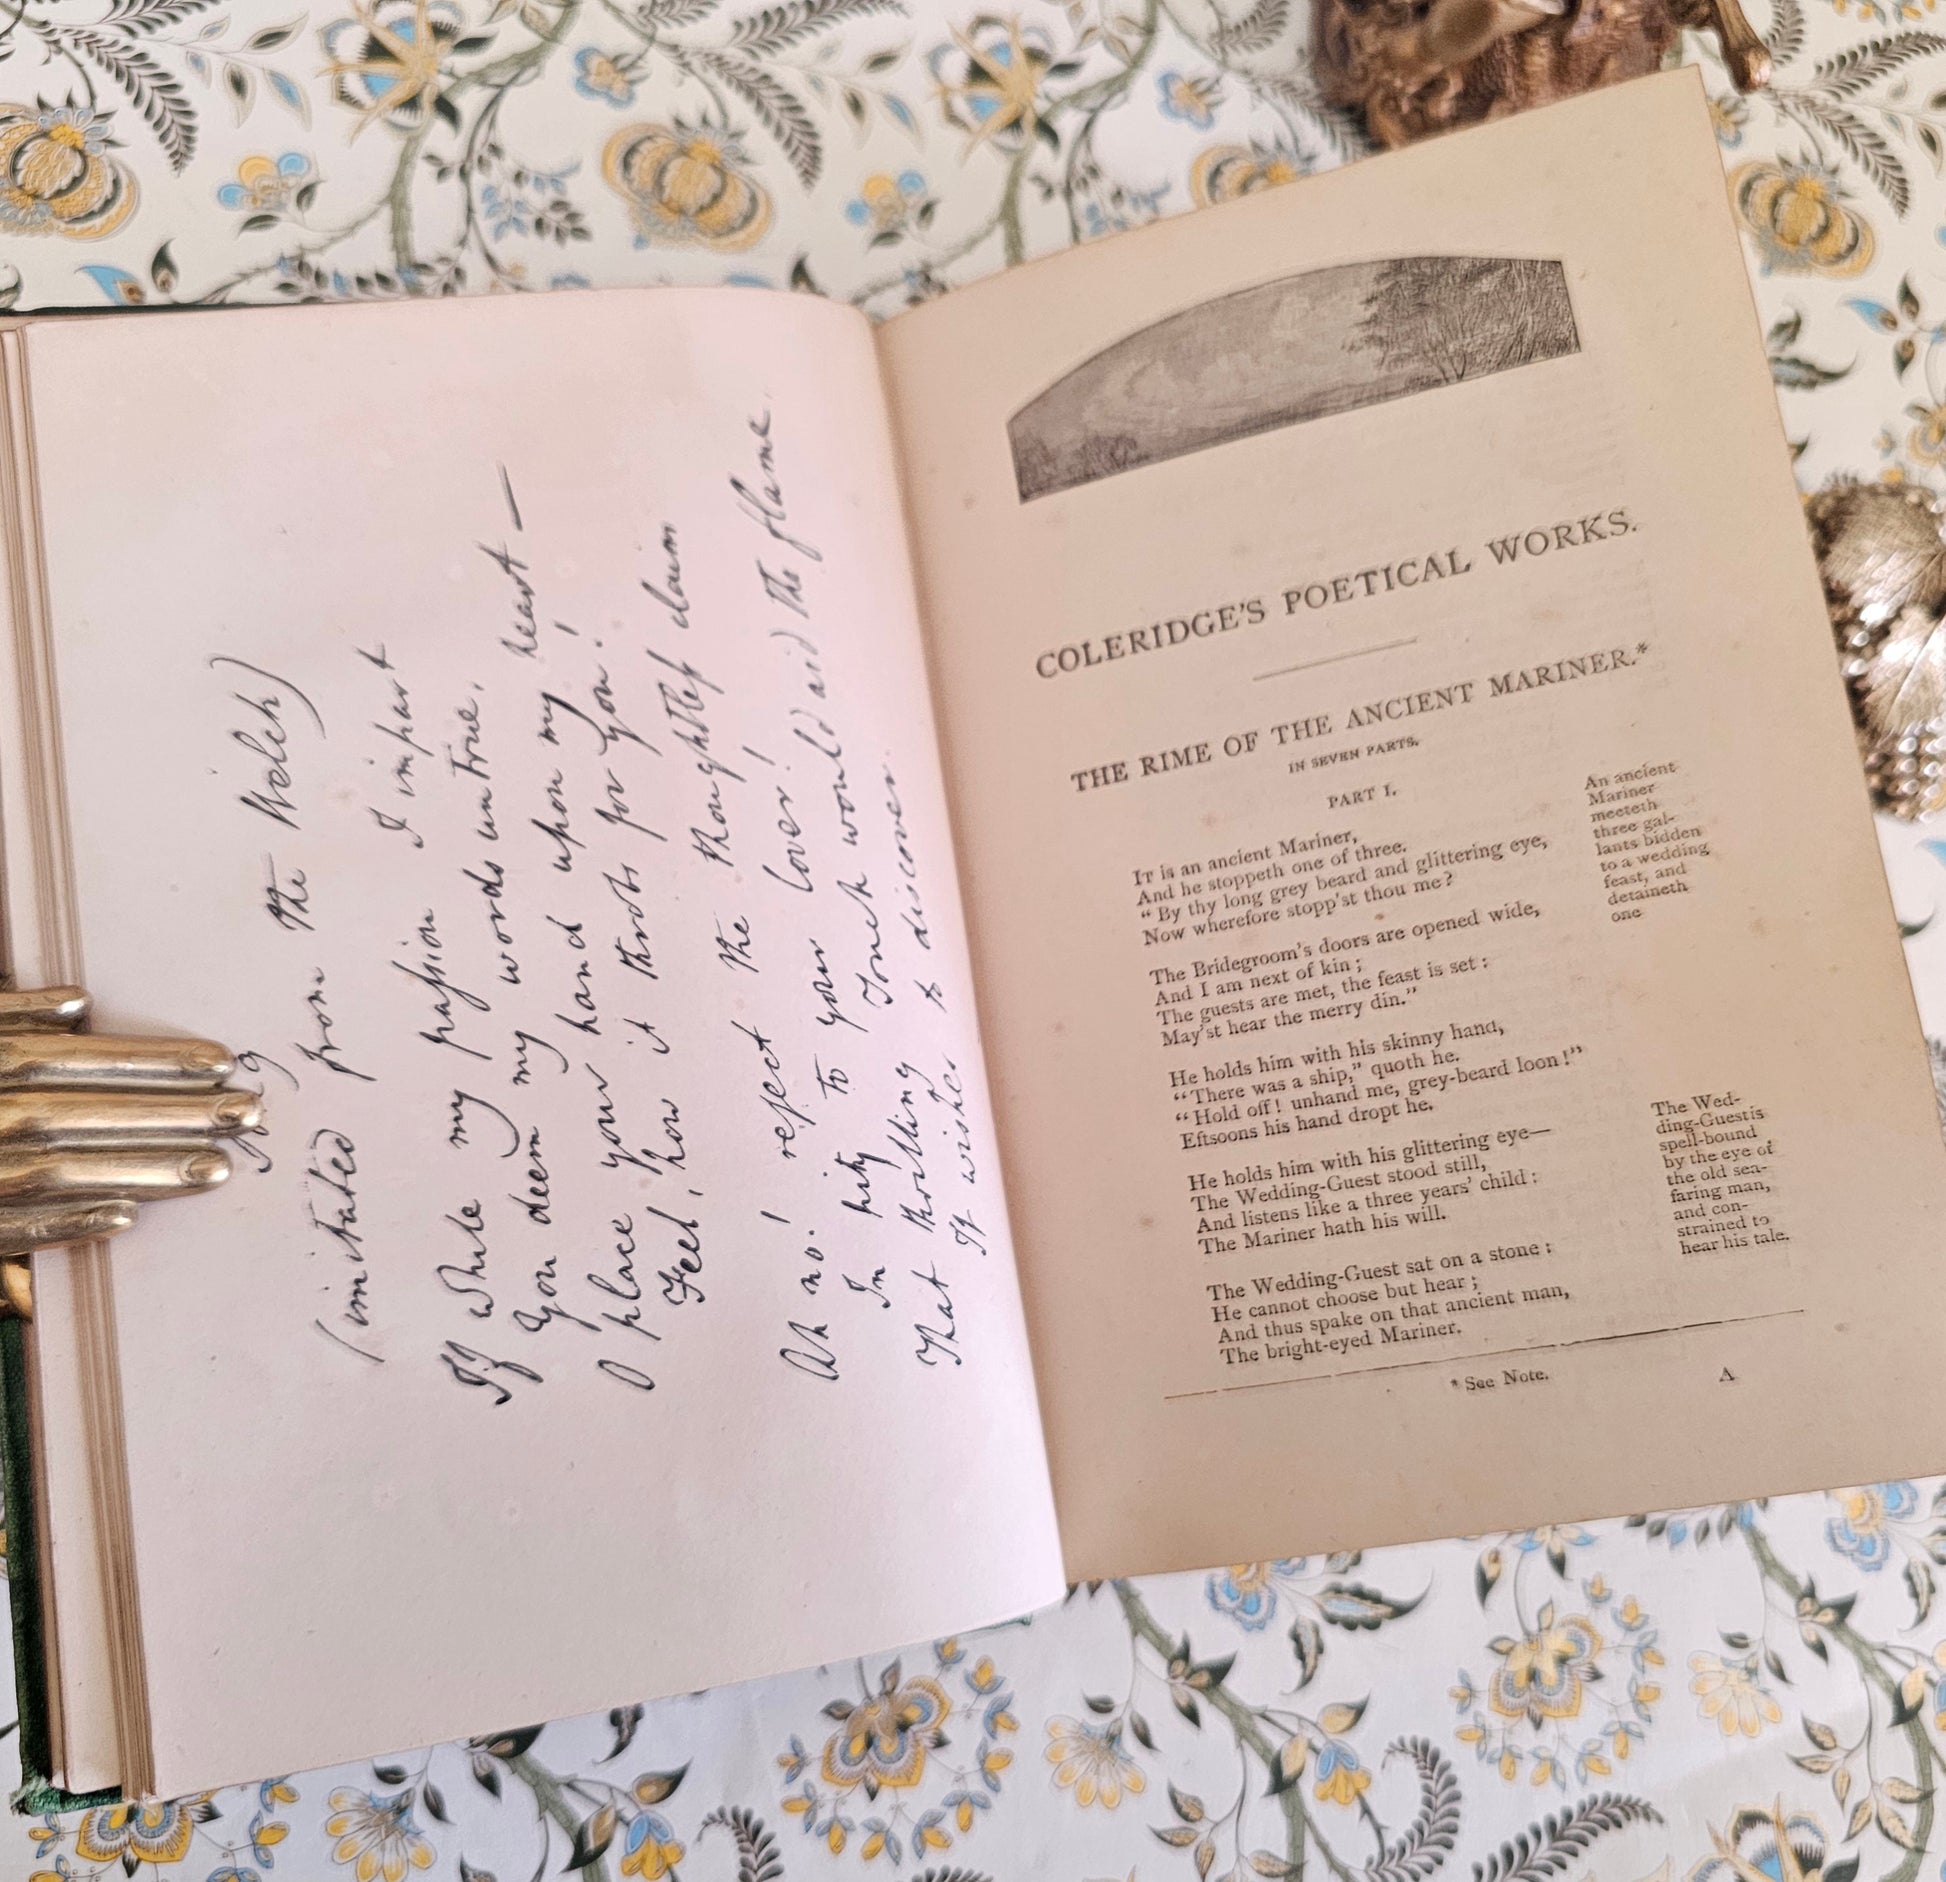 (imitated from the Welch)
If while my passion I impart
You deem my words untrue,
O place your hand upon my heart—
Feel, how it throbs for you!
Ah no! reject the thoughtless claim
In pity to your lover!
That thrilling Touch would aid the flame,
It wishes to discover.
COLERIDGE'S POETICAL WORKS.
THE RIME OF THE ANCIENT MARINER.*
IN SEVEN PARTS.
PART I.
IT is an ancient Mariner,
And he stoppeth one of three.
"By thy long grey beard and glittering eye,
Now wherefore stopp'st thou me?
The Bridegroom's doors are opened wide,
And I am next of kin;
The guests are met, the feast is set:
May'st hear the merry din."
He holds him with his skinny hand,
"There was a ship," quoth he.
"Hold off! unhand me, grey-beard loon!"
Eftsoons his hand dropt he.
He holds him with his glittering eye—
The Wedding-Guest stood still,
And listens like a three years' child:
The Mariner hath his will.
The Wedding-Guest sat on a stone:
He cannot choose but hear;
And thus spake on that ancient man,
The bright-eyed Mariner.
An ancient
Mariner
meeteth
three gal-
lants bidden
to a wedding
feast, and
detaineth
one
The Wed-
ding-Guest is
spell-bound
by the eye of
the old sea-
faring man,
and con-
strained to
hear his tale.
* See Note.
A